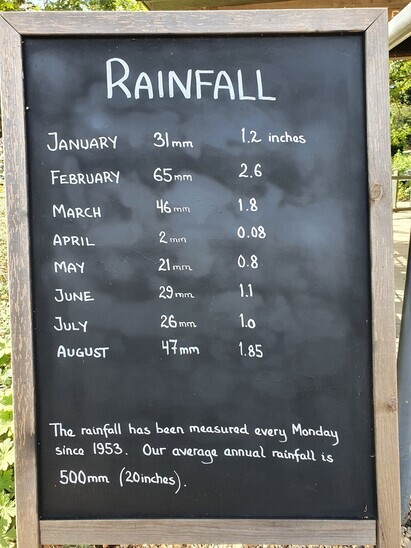 RAINFALL
JANUARY 31mm 1.2 inches
FEBRUARY 65mm 2.6
MARCH 46mm 1.8
APRIL 2mm 0.08
MAY 21mm 0.8
JUNE 29mm 1.1
JULY 26mm 1.0
AUGUST 47mm 1.85
The rainfall has been measured every Monday
since 1953. Our average annual rainfall is
500mm (20inches).